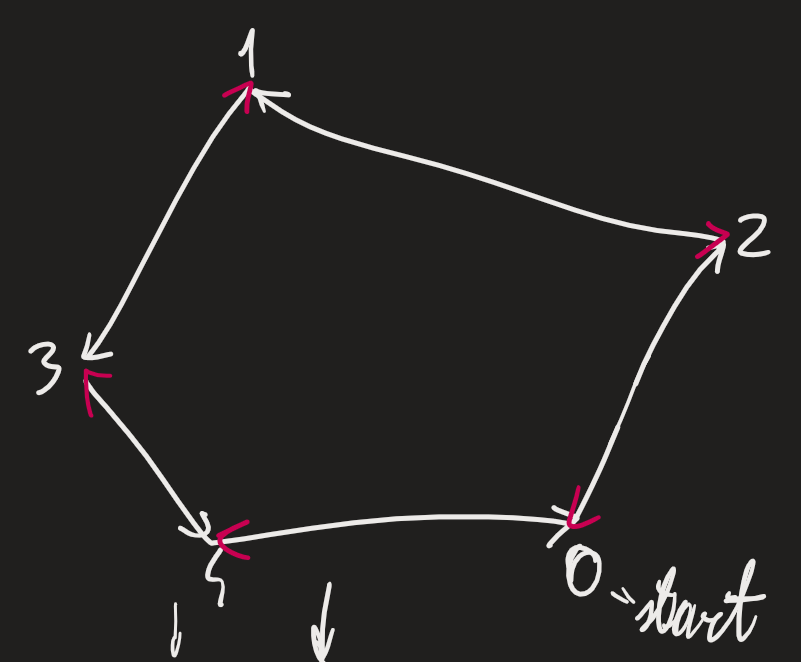 1
2
3
0 → start